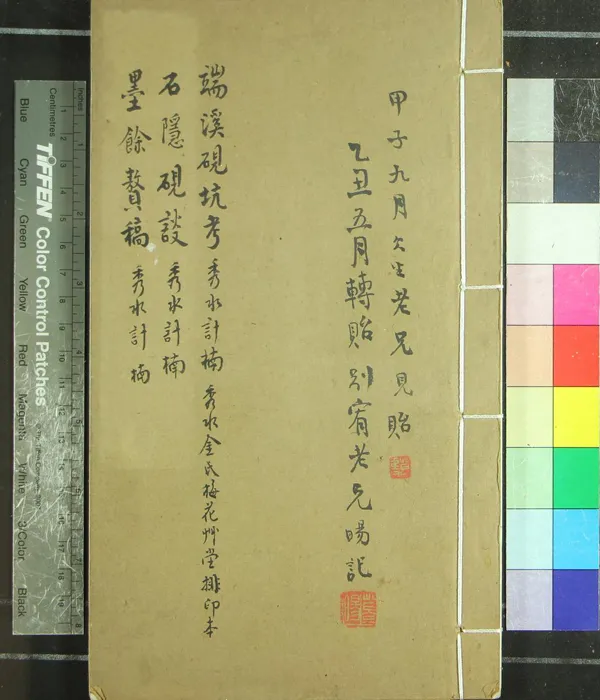 甲子九月欠生老兄見貽
乙丑五月轉貽別宥老兄暘記
端溪硯坑考 秀水計楠 秀水金氏梅花艸堂排印本
石隱硯談 秀水計楠
墨餘贅稿 秀水計楠
Inches
Centimetres
TIFFEN Color Control Patches
Blue
Cyan
Green
Yellow
Red
Magenta
White
3/Color
Black